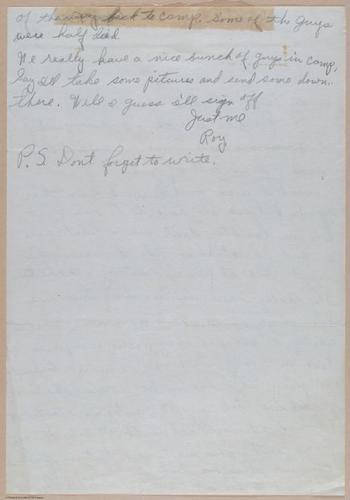 of the way back to camp. Some of the guys
were half dead
We really have a nice bunch of guys in camp,
Say I'll take some pictures and send some down
there. Well I guess I'll sign off
Just me
Roy
P.S. Dont forget to write.